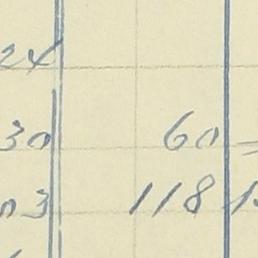 24
30 60
03 118